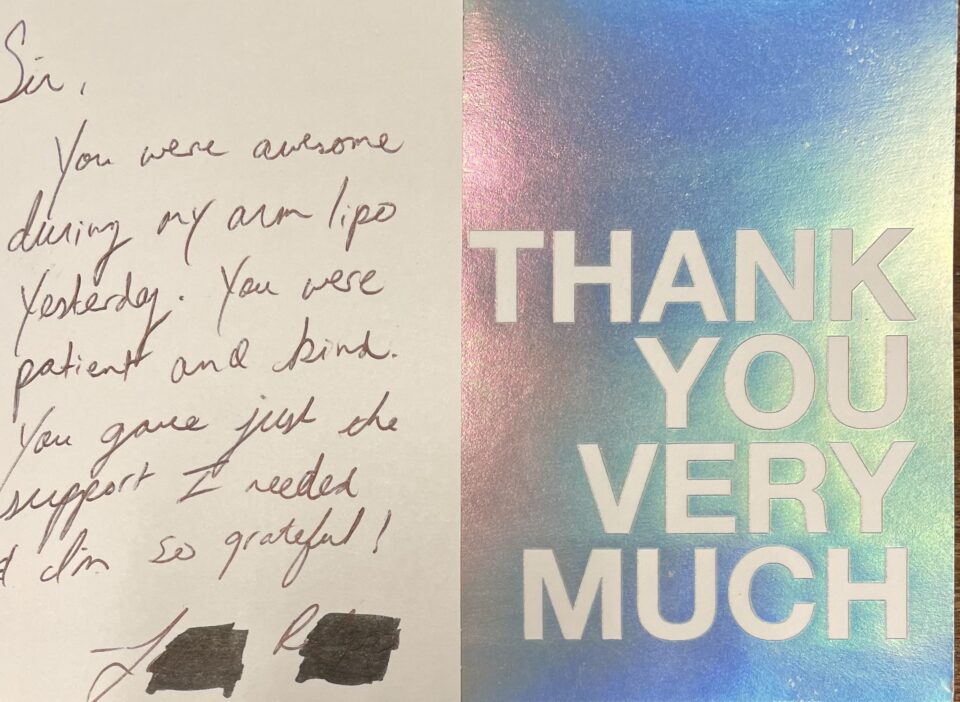 Sir,
You were awesome
during my arm lipo
Yesterday. You were
patient and kind.
You gave just the
support I needed
I'm so grateful!
THANK
YOU
VERY
MUCH